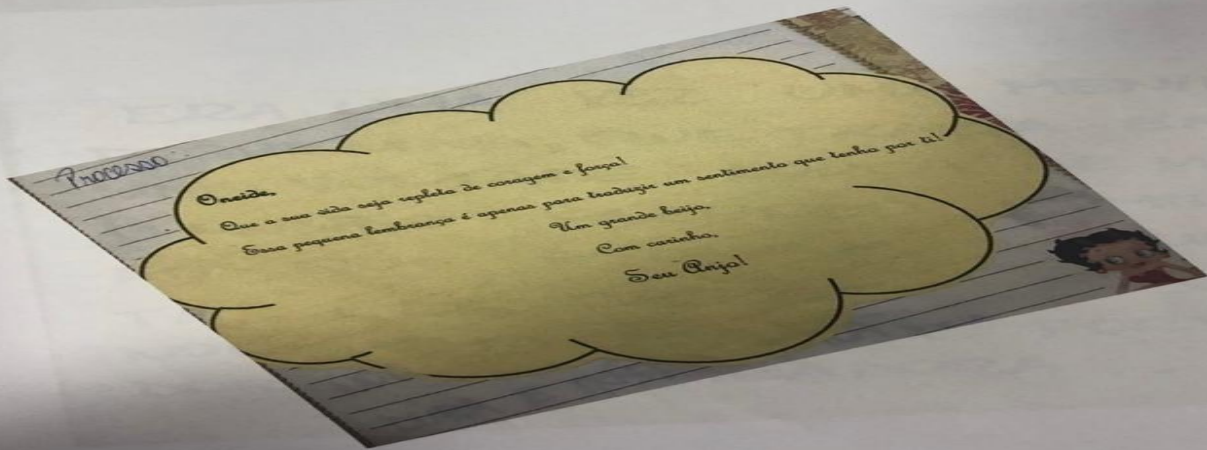 Processo
Oneide,
Que a sua vida seja repleta de coragem e força!
Essa pequena lembrança é apenas para traduzir um sentimento que tenho por ti!
Um grande beijo,
Com carinho,
Seu Anjo!